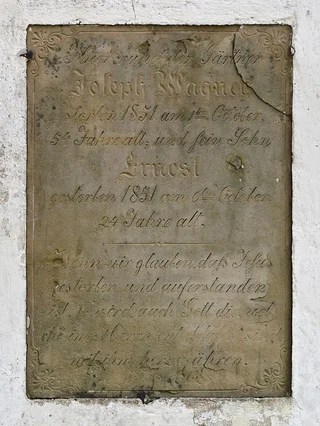 Hier ruhet der Gärtner
Joseph Wagner
gestorben 1831 am 1ten October
54 Jahre alt, und sein Sohn
Ernest
gestorben 1831 am 6ten October
24 Jahre alt.
Wenn wir glauben, daß Jesus
gestorben und auferstanden
ist, so wird auch Gott die, wel
che im Herrn entschlafen
mit ihm herzuführen.